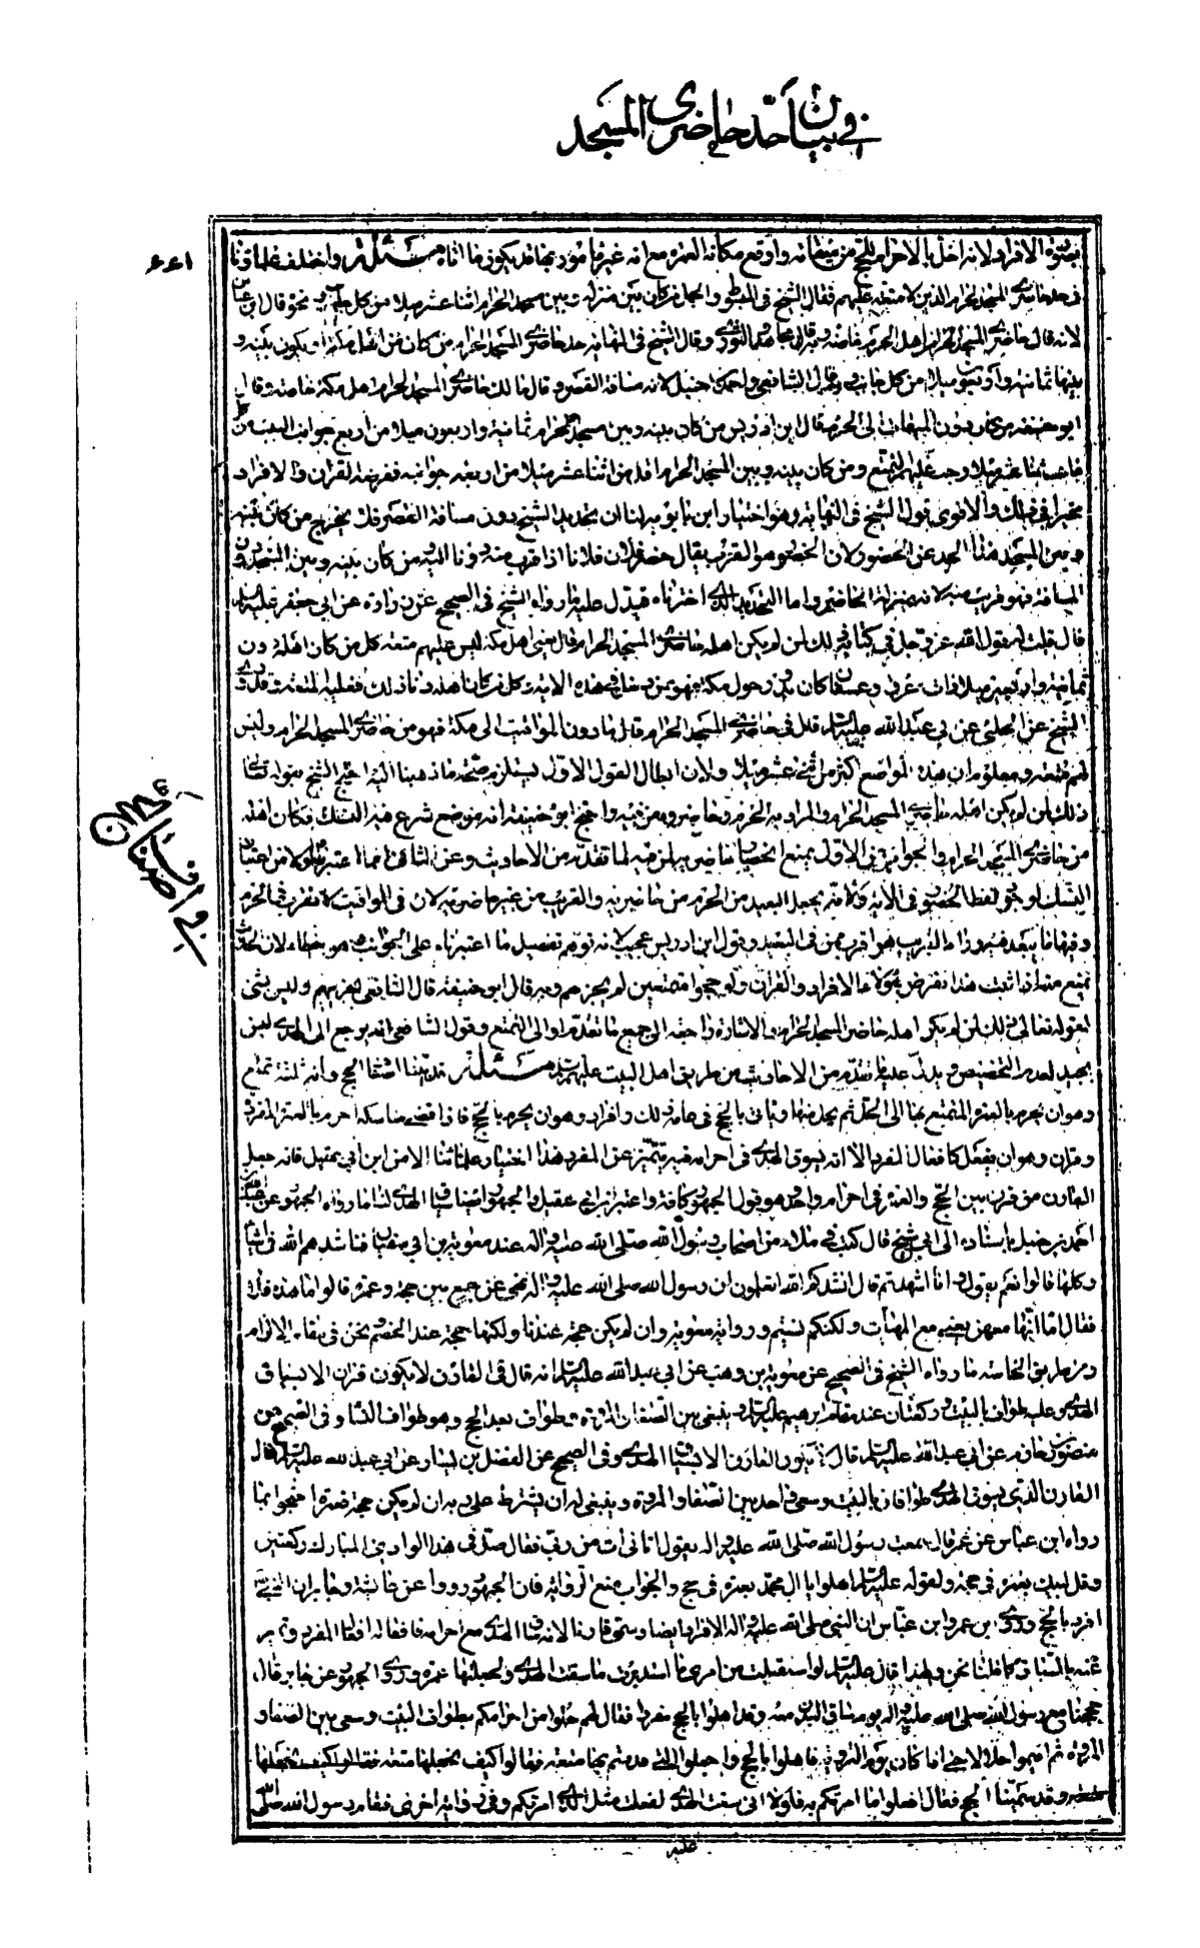 في بيان حد حاضري المسجد
٦٦١
بصورة الافراد لانه اخل بالاحرام للحج من ميقاته واوقع مكانه العمرة مع انه غير مامور بها فلا يكون ما اتاه مسئلة واختلف علماؤنا
في حد حاضري المسجد الحرام الذين لا متعة عليهم فقال الشيخ في المبسوط والجمل من كان بين منزله وبين مسجد الحرام اثنا عشر ميلا من كل جانب ونحوه قال ابن عباس
لانه قال حاضري المسجد الحرام اهل الحرم خاصة وبه قال مجاهد والثوري وقال الشيخ في النهاية حد حاضري المسجد الحرام من كان من اهل مكة او يكون بينه و
بينها ثمانية واربعون ميلا من كل جانب وبه قال الشافعي واحمد بن حنبل لانه مسافة القصر وقال مالك حاضري المسجد الحرام اهل مكة خاصة وقال
ابو حنيفة من كان دون الميقات الى الحرم قال ابن ادريس من كان بينه وبين مسجد الحرام ثمانية واربعون ميلا من اربع جوانب البيت من كل
جانب اثنا عشر ميلا وجب عليهم التمتع ومن كان بينه وبين المسجد الحرام اقل من اثنا عشر ميلا من اربعة جوانبه ففرضه القران والافراد
مخيرا في ذلك والاقوى قول الشيخ في النهاية وهو اختيار ابن بابويه لنا ان تحديد الشيخ دون مسافة القصر فلا يخرج من كان بينه
وبين المسجد هذا الحد عن الحضور لان الحضور هو القرب يقال حضر فلان فلانا اذا قرب منه ودنا اليه من كان بينه وبين المسجد دون
المسافة فهو قريب منه لانه بمنزلة الحاضر واما التحديد الذي اخترناه فيدل عليه ما رواه الشيخ في الصحيح عن زرارة عن ابي جعفر عليه السلام
قال قلت له قول الله عز وجل في كتابه ذلك لمن لم يكن اهله حاضري المسجد الحرام قال يعني اهل مكة ليس عليهم متعة كل من كان اهله دون
ثمانية واربعين ميلا ذات عرق وعسفان كما يدور حول مكة فهو ممن دخل في هذه الاية وكل من كان اهله وراء ذلك فعليه المتعة وقد روى
الشيخ عن الحلبي عن ابي عبد الله عليه السلام قال في حاضري المسجد الحرام قال ما دون المواقيت الى مكة فهو من حاضري المسجد الحرام وليس
لهم متعة ومعلوم ان هذه المواضع اكثر من اثني عشر ميلا ولان ابطال القول الاول يستلزم صحة ما ذهبنا اليه احتج الشيخ بقوله تعالى
ذلك لمن لم يكن اهله حاضري المسجد الحرام والمراد به الحرم وحاضروه من فيه واحتج ابو حنيفة انه موضع شرع فيه النسك فكان اهله
من حاضري المسجد الحرام والجواب عن الاول بمنع اختصاص
النسك لو جوز لفظ الحضور في الاية
وفيها ما يبعد
تمتع منه اذا ثبت هذا ففرض هؤلاء الافراد والقران ولو حجوا متمتعين لم يجزهم وبه قال ابو حنيفة قال الشافعي يجزيهم وليس بشئ
لقوله تعالى ذلك لمن لم يكن اهله حاضري المسجد الحرام والاشارة راجعة الى جميع ما تقدم او الى التمتع وقول الشافعي انه يرجع الى الهدي ليس
بجيد لعدم التخصيص ويدل عليه ما تقدم من الاحاديث من طريق اهل البيت عليهم السلام مسئلة قد بينا اصناف الحج وانه ثلثة تمتع
وهو ان يحرم بالعمرة المتمتع بها الى الحج ثم يحل منها وياتي بالحج في عامه ذلك وافراد وهو ان يحرم بالحج فاذا قضى مناسكه احرم بالعمرة المفردة
وقران وهو ان يفعل كافعال المفرد الا انه يسوق الهدي في احرامه فبه يتميز عن المفرد هذا اختيار علمائنا الا من ابن ابي عقيل فانه جعل
القارن من قرن بين الحج والعمرة في احرام واحد وهو قول الجمهور كافة
احمد بن حنبل باسناده الى ابي شيخ قال كنت في ملاء من اصحاب رسول الله صلى الله عليه واله عند معوية بن ابي سفيان فناشدهم الله في اشياء
وكلما قالوا نعم يقول وانا اشهد ثم قال انشدكم الله اتعلمون ان رسول الله صلى الله عليه واله نهى عن جمع بين حجة وعمرة قالوا اما هذه فلا
فقال اما انها معهن يعني مع المنهيات ولكنكم نسيتم ورواية معوية وان لم يكن حجة عندنا ولكنها حجة عند الخصم نحن في مقام الالزام
ومن طريق الخاصة ما رواه الشيخ في الصحيح عن معوية بن وهب عن ابي عبد الله عليه السلام انه قال في القارن لا يكون قران الا بسياق
الهدي وعليه طواف بالبيت وركعتان عند مقام ابرهيم عليه السلام وسعي بين الصفا والمروة وطواف بعد الحج وهو طواف النساء وفي الصحيح عن
منصور بن حازم عن ابي عبد الله عليه السلام قال لا يكون القارن الا بسياق الهدي وفي الصحيح عن الفضل بن يسار عن ابي عبد الله عليه السلام قال
القارن الذي يسوق الهدي عليه طوافان بالبيت وسعي واحد بين الصفا والمروة وينبغي له ان يشترط على ربه ان لم يكن حجة فعمرة احتجوا بما
رواه ابن عباس عن عمر قال سمعت رسول الله صلى الله عليه واله يقول اتاني ات من ربي فقال صل في هذا الوادي المبارك ركعتين
وقل لبيك بعمرة في حجة ولقوله عليه السلام اهلوا يا ال محمد بعمرة في حج والجواب منع الرواية فان الجمهور رووا عن عائشة وجابر ان النبي ص
افرد بالحج وروى ابن عمر وابن عباس ان النبي صلى الله عليه واله الافراد ايضا
عنه بالسياق كما قلنا نحن ولهذا قال عليه السلام لو استقبلت من امري ما استدبرت ما سقت الهدي ولجعلتها عمرة وروى الجمهور عن جابر قال
حججنا مع رسول الله صلى الله عليه واله يوم ساق البدن معه وقد اهلوا بالحج مفردا فقال لهم حلوا من احرامكم بطواف البيت وسعي بين الصفا و
المروة ثم اقيموا حلالا حتى اذا كان يوم التروية فاهلوا بالحج واجعلوا التي قدمتم بها متعة فقالوا كيف نجعلها متعة
وقد سمينا الحج فقال افعلوا ما امرتكم به فلولا اني سقت الهدي لفعلت مثل الذي امرتكم وفي رواية اخرى فقام رسول الله صلى الله
عليه